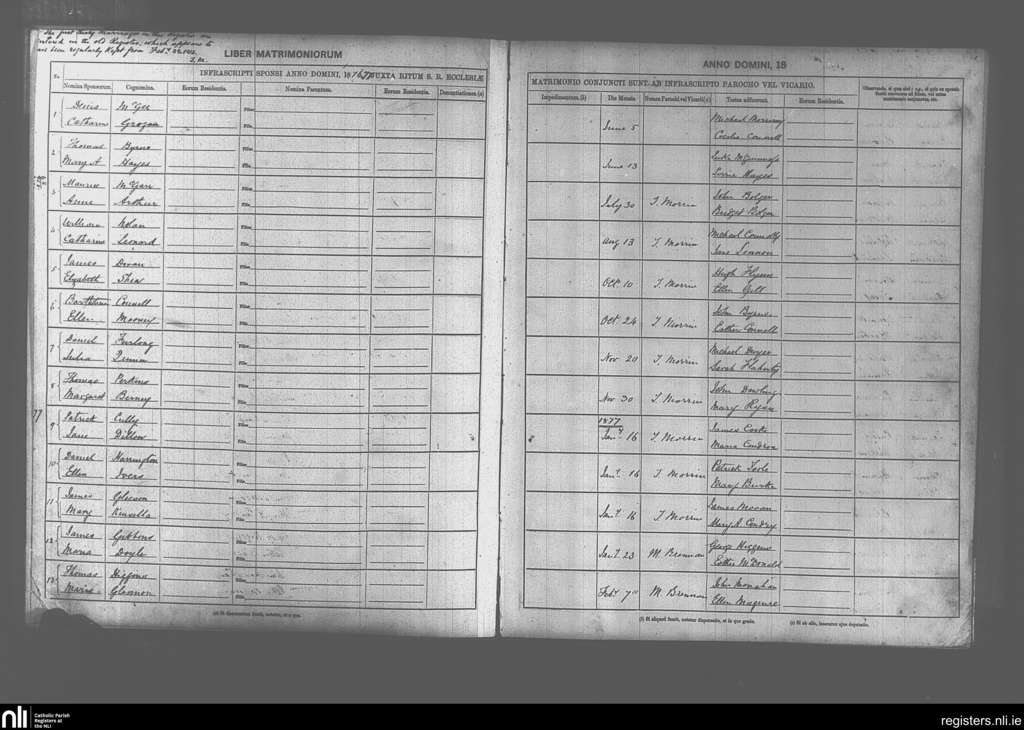 The first thirty marriages in this Register are
entered in the old Register, which appears to
have been regularly kept from Feb.
LIBER MATRIMONIORUM
INFRASCRIPTI SPONSI ANNO DOMINI, 18 JUXTA RITUM S. R. ECCLESIÆ
No. Nomina Sponsorum. Cognomina. Eorum Residentia. Nomina Parentum. Eorum Residentia. Denuntiationes.(a)
1 Denis McGee Filius
Catharine Grogan Filia
2 Thomas Byrne Filius
Mary A Hayes Filia
3 Maurice Filius
Anne Arthur Filia
4 William Nolan Filius
Catharine Leonard Filia
5 James Filius
Elizabeth Shea Filia
6 Connell Filius
Ellen Mooney Filia
7 Daniel Furlong Filius
Julia Filia
8 Thomas Perkins Filius
Margaret Berney Filia
77
9 Patrick Cully Filius
Jane Dillon Filia
10 Daniel Harrington Filius
Ellen Ivers Filia
11 James Gleeson Filius
Mary Kinsella Filia
12 James Gibbons Filius
Maria Doyle Filia
13 Thomas Filius
Maria Filia
(a) Si dispensatum fuerit, notetur, et a quo.
ANNO DOMINI, 18
MATRIMONIO CONJUNCTI SUNT AB INFRASCRIPTO PAROCHO VEL VICARIO.
Impedimentum.(b) Die Mensis Nomen Parochi vel Vicarii(c) Testes adfuerunt. Eorum Residentia.
June 5 Michael Morrissey
Cecelia Connell
June 13 Luke McGuinness
Hayes
July 30 T. Morrin John Bolger
Bridget Bolger
Aug 13 T. Morrin Michael Connolly
Jane Lennon
Oct. 10 T. Morrin Hugh Flynn
Ellen Gill
Oct. 24 T. Morrin John Byrne
Esther Connell
Nov 20 T. Morrin Michael Dwyer
Sarah Flaherty
Nov 30 T. Morrin John Dowling
Mary Ryan
1877
Jany 16 T. Morrin James Cooke
Maria Condron
Jany. 16 T. Morrin Patrick Toole
Mary Burke
Jany. 16 T. Morrin James Moran
Mary A. Condry
Jany. 23 M. Brennan George Higgens
Esther McDonald
Feby 7th M. Brennan John Monahan
Ellen Magennis
(b) Si aliquod fuerit, notetur dispensatio, et in quo gradu.
(c) Si ab alio, inseratur ejus deputatio.
nli
Catholic Parish
Registers at
the NLI
registers.nli.ie